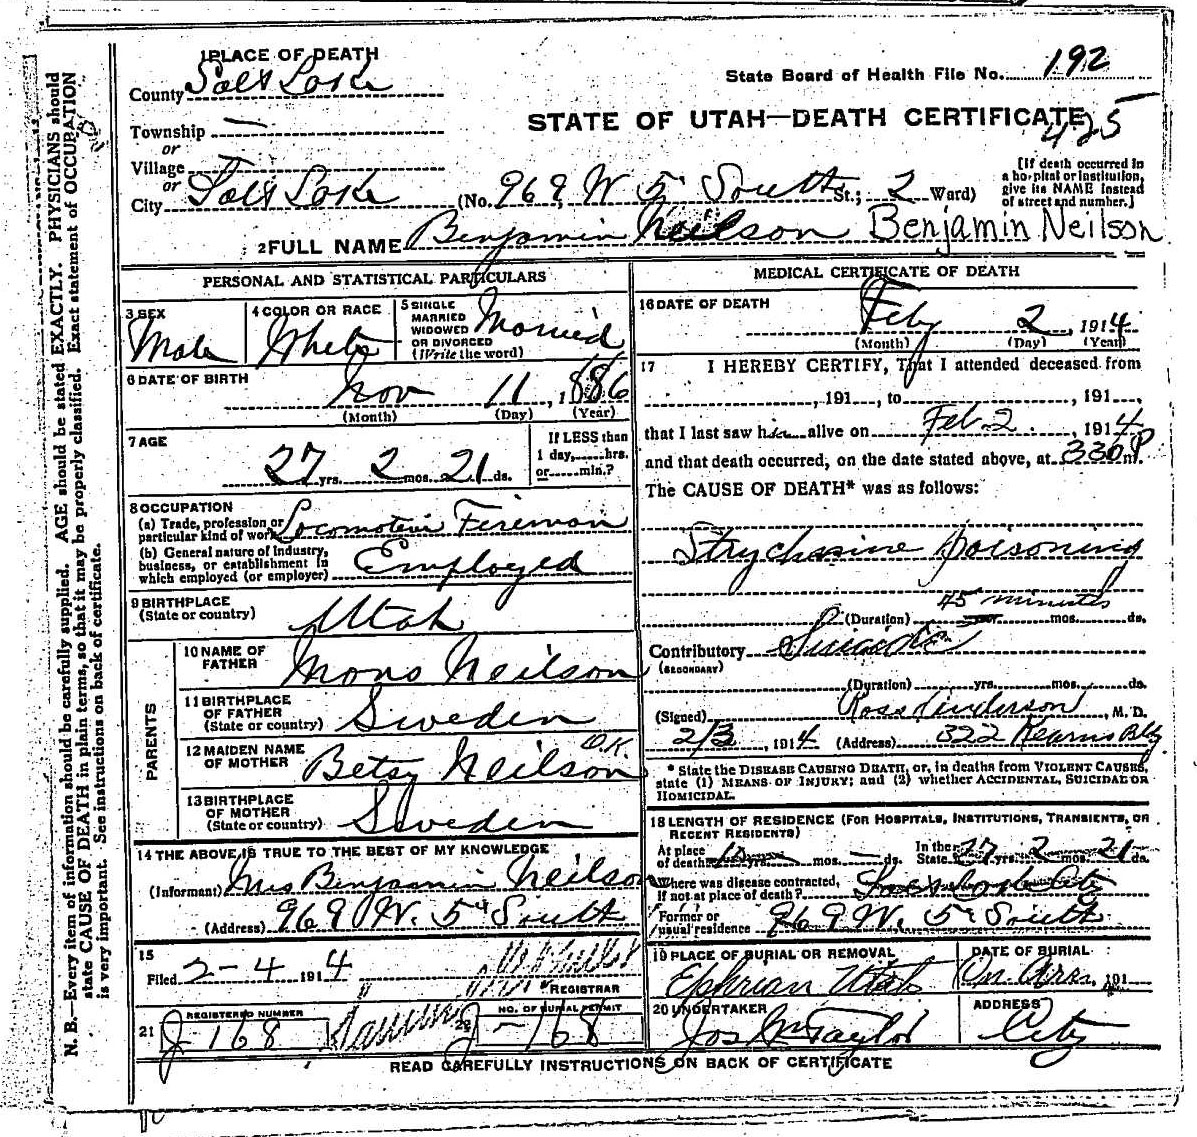 1 PLACE OF DEATH
County Salt Lake
State Board of Health File No. 192
STATE OF UTAH—DEATH CERTIFICATE
425
Township —
or
Village
or
City Salt Lake (No. 969 W 5 South St.; 2 Ward)
[If death occurred in a hospital or institution, give its NAME instead of street and number.]
2 FULL NAME Benjamin Neilson Benjamin Neilson
PERSONAL AND STATISTICAL PARTICULARS
3 SEX Male
4 COLOR OR RACE White
5 SINGLE MARRIED WIDOWED OR DIVORCED (Write the word) Married
6 DATE OF BIRTH Nov 11, 1886
(Month) (Day) (Year)
7 AGE 27 yrs. 2 mos. 21 ds.
If LESS than 1 day, hrs. or min.?
8 OCCUPATION
(a) Trade, profession or particular kind of work Locomotive Fireman
(b) General nature of industry, business, or establishment in which employed (or employer) Employed
9 BIRTHPLACE (State or country) Utah
PARENTS
10 NAME OF FATHER Mons Neilson
11 BIRTHPLACE OF FATHER (State or country) Sweden
12 MAIDEN NAME OF MOTHER Betsy Neilson O.K.
13 BIRTHPLACE OF MOTHER (State or country) Sweden
14 THE ABOVE IS TRUE TO THE BEST OF MY KNOWLEDGE
(Informant) Mrs Benjamin Neilson
(Address) 969 W. 5th South
15
Filed 2-4 1914
REGISTRAR
21 REGISTERED NUMBER J 168
22 NO. OF BURIAL PERMIT J-168
MEDICAL CERTIFICATE OF DEATH
16 DATE OF DEATH Feby 2, 1914
(Month) (Day) (Year)
17 I HEREBY CERTIFY, That I attended deceased from
, 191 , to , 191 ,
that I last saw him alive on Feb. 2, 1914
and that death occurred, on the date stated above, at 330 P m.
The CAUSE OF DEATH* was as follows:
Strychnine poisoning
(Duration) 45 minutes yrs. mos. ds.
Contributory Suicide
(SECONDARY)
(Duration) yrs. mos. ds.
(Signed) Ross Anderson, M. D.
2/3, 1914 (Address) 322 Kearns Bldg
* State the DISEASE CAUSING DEATH, or, in deaths from VIOLENT CAUSES, state (1) MEANS OF INJURY; and (2) whether ACCIDENTAL, SUICIDAL OR HOMICIDAL.
18 LENGTH OF RESIDENCE (FOR HOSPITALS, INSTITUTIONS, TRANSIENTS, OR RECENT RESIDENTS)
At place of death yrs. mos. — ds. In the State 27 yrs. 2 mos. 21 ds.
Where was disease contracted, if not at place of death? Salt Lake City
Former or usual residence 969 W. 5th South
19 PLACE OF BURIAL OR REMOVAL Ephriam Utah
DATE OF BURIAL On Arr., 191
20 UNDERTAKER Jos Wm Taylor
ADDRESS City
READ CAREFULLY INSTRUCTIONS ON BACK OF CERTIFICATE
N. B.—Every item of information should be carefully supplied. AGE should be stated EXACTLY. PHYSICIANS should
state CAUSE OF DEATH in plain terms, so that it may be properly classified. Exact statement of OCCUPATION
is very important. See instructions on back of certificate.